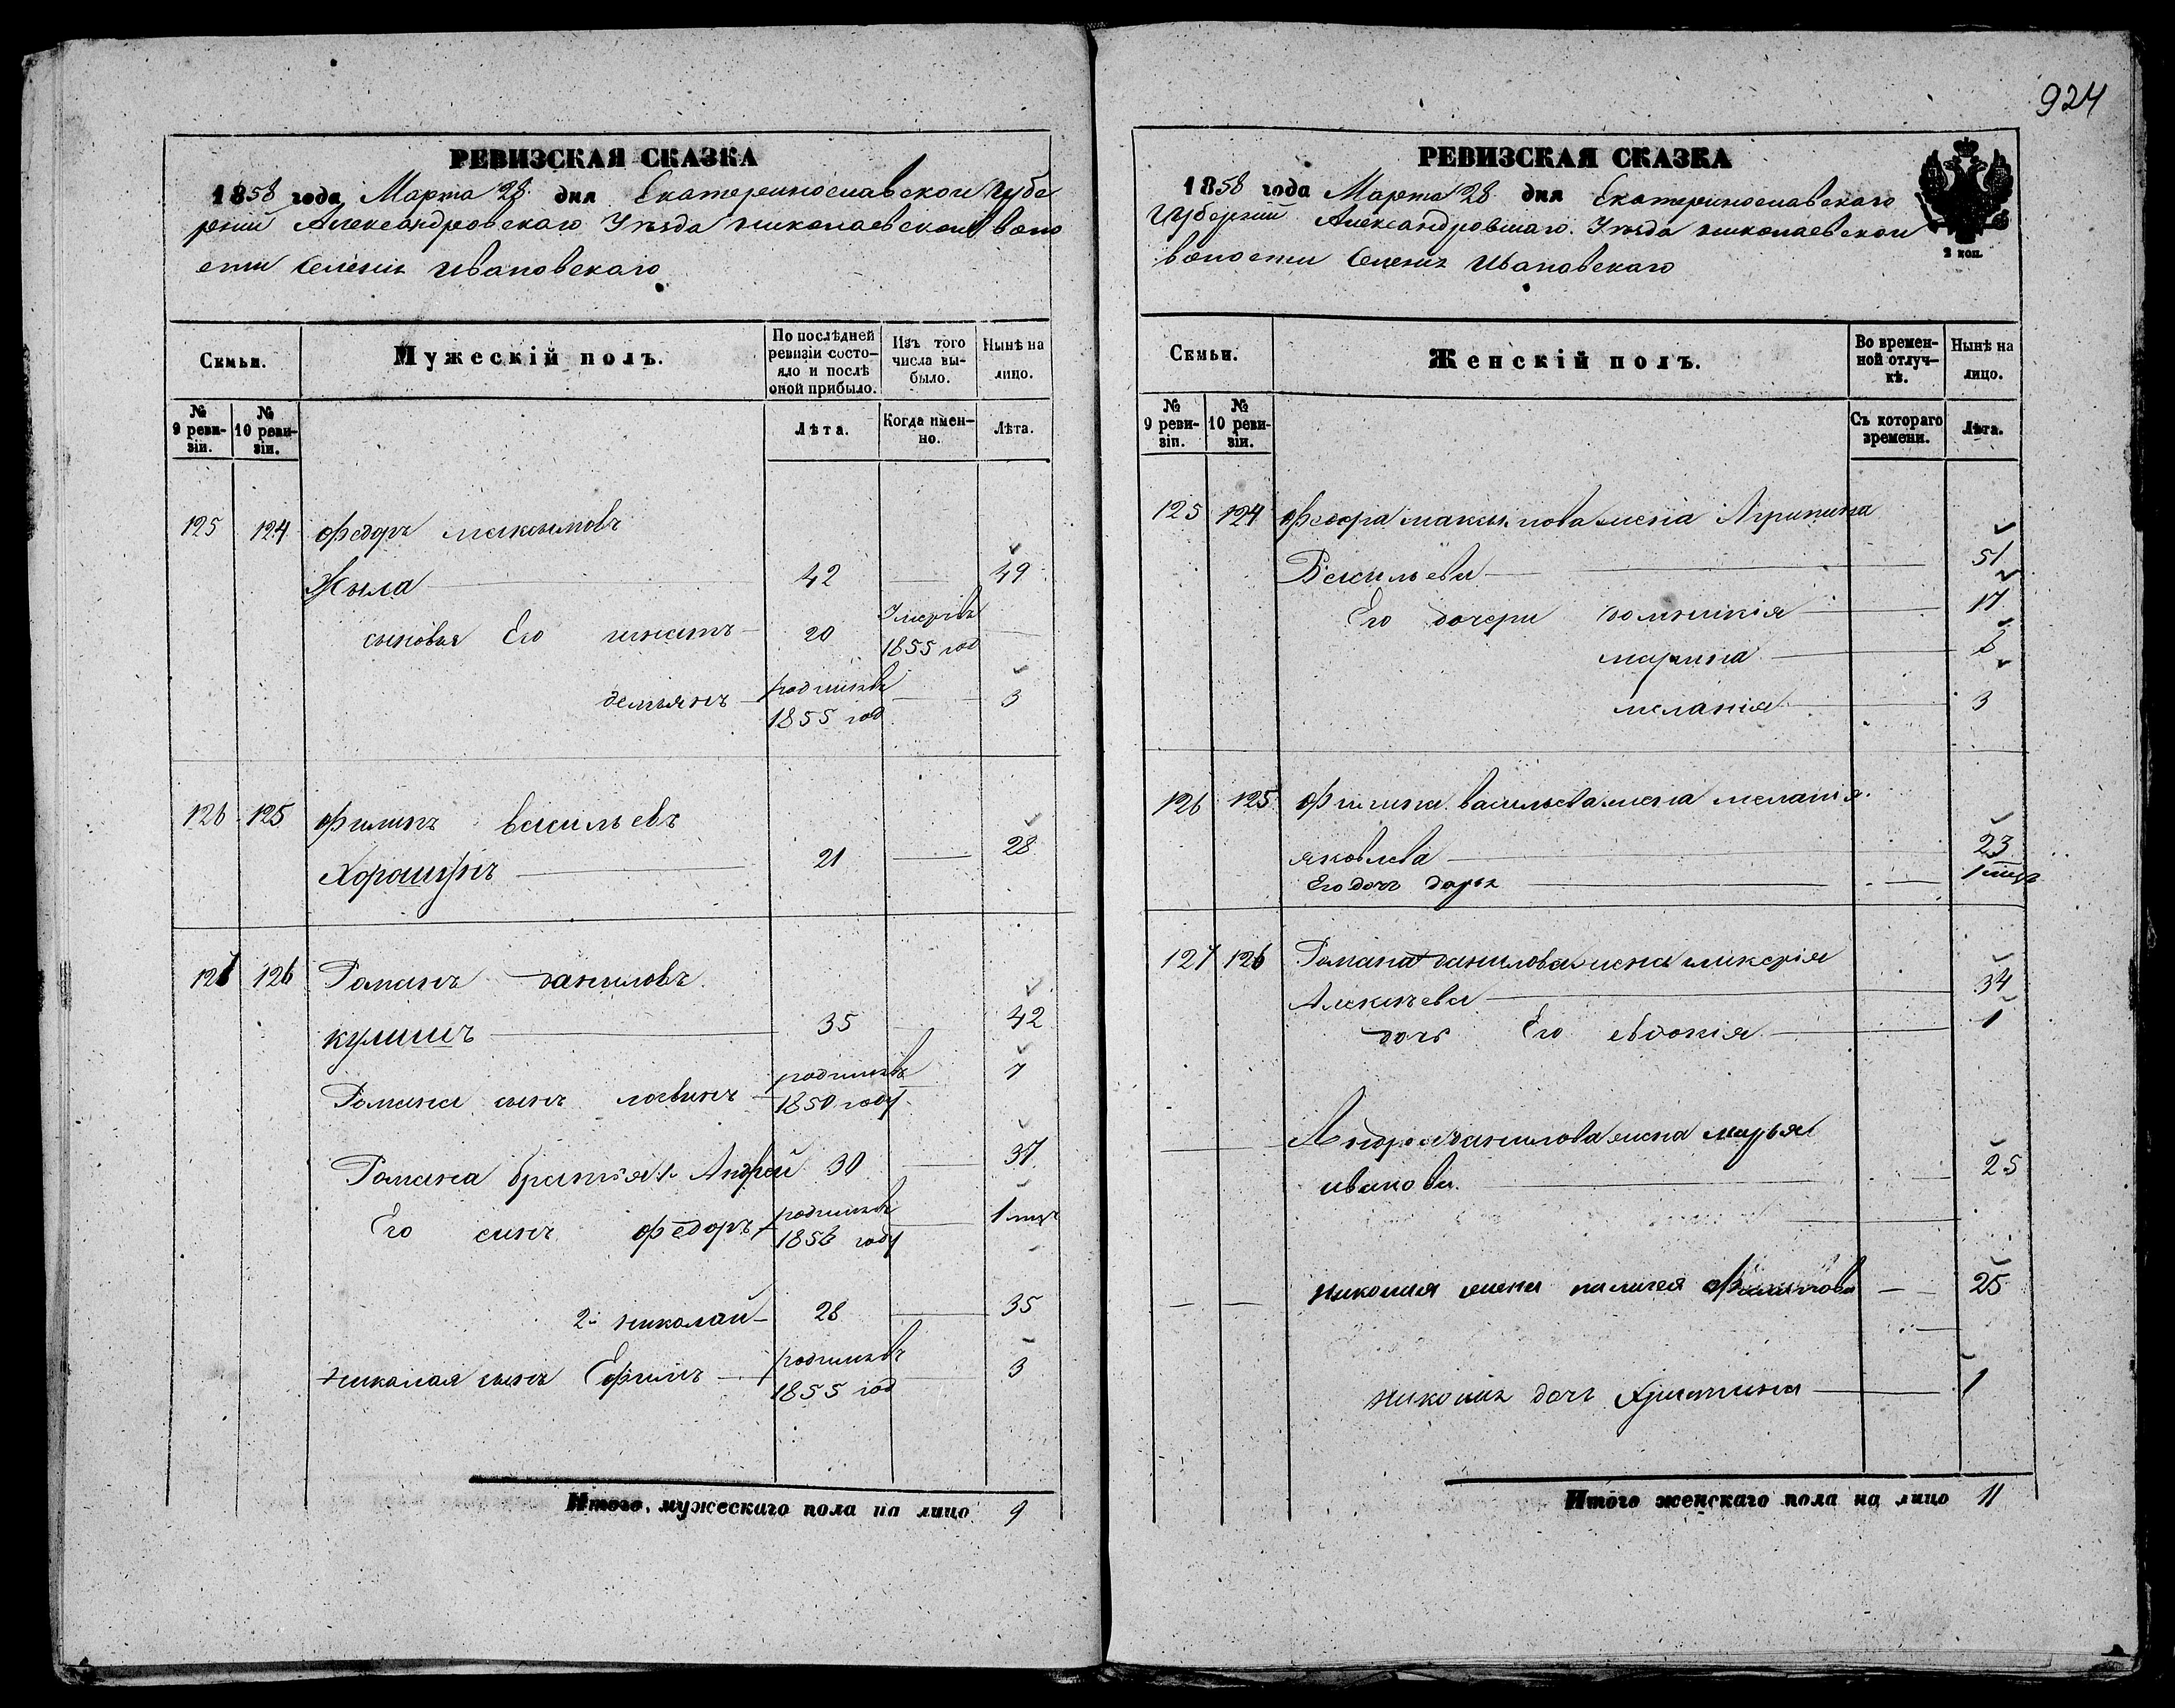 924
РЕВИЗСКАЯ СКАЗКА
1858 года Марта 28 дня Екатеринославской Губе
рнии Александровскаго Уѣзда николаевской воло
сти Селенія Ивановскаго
Семьи.
Мужескій полъ.
По послѣдней ревизіи состояло и послѣ оной прибыло.
Изъ того числа выбыло.
Нынѣ на лицо.
№ 9 ревизіи.
№ 10 ревизіи.
Лѣта.
Когда именно.
Лѣта.
125 124 Федоръ максимовъ
Жила 42 49
сыновья Его игнатъ 20 Умеръ въ 1855 год
демьянъ родился въ 1855 год 3
126 125 Филипъ васильевъ
Хорошунъ 21 28
127 126 Романъ даниловъ
кулишъ 35 42
Романа сынъ логвинъ родился въ 1850 году 7
Романа братья 1. Андрей 30 37
Его сынъ федоръ родился въ 1858 году 1 мцъ
2. николай 28 35
николая сынъ Ефимъ родился въ 1855 год 3
Итого, мужескаго пола на лицо 9
РЕВИЗСКАЯ СКАЗКА
1858 года Марта 28 дня Екатеринославскаго
Губерніи Александровскаго Уѣзда николаевской
волости Селенія Ивановскаго
2 коп.
Семьи.
Женскій полъ.
Во временной отлучкѣ.
Нынѣ на лицо.
№ 9 ревизіи.
№ 10 ревизіи.
Съ котораго времени.
Лѣта.
125 124 Федора максимова жена Агрипина
Васильева 51
Его дочери домникія 17
марина 8
меланія 3
126 125 Филипа васильева жена меланія
яковлева 23
Его дочь дарья 1 мцъ
127 126 Романа данилова жена гликерія
Алексѣева 34
дочь Его евдокія 1
Андрея данилова жена марья
иванова 25
николая жена пелагея Филипова 25
николая дочь Христина 1
Итого женскаго пола на лицо 11